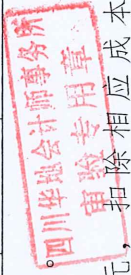 四川华雄会计师事务所
审验专用章
元，扣除相应成本
。